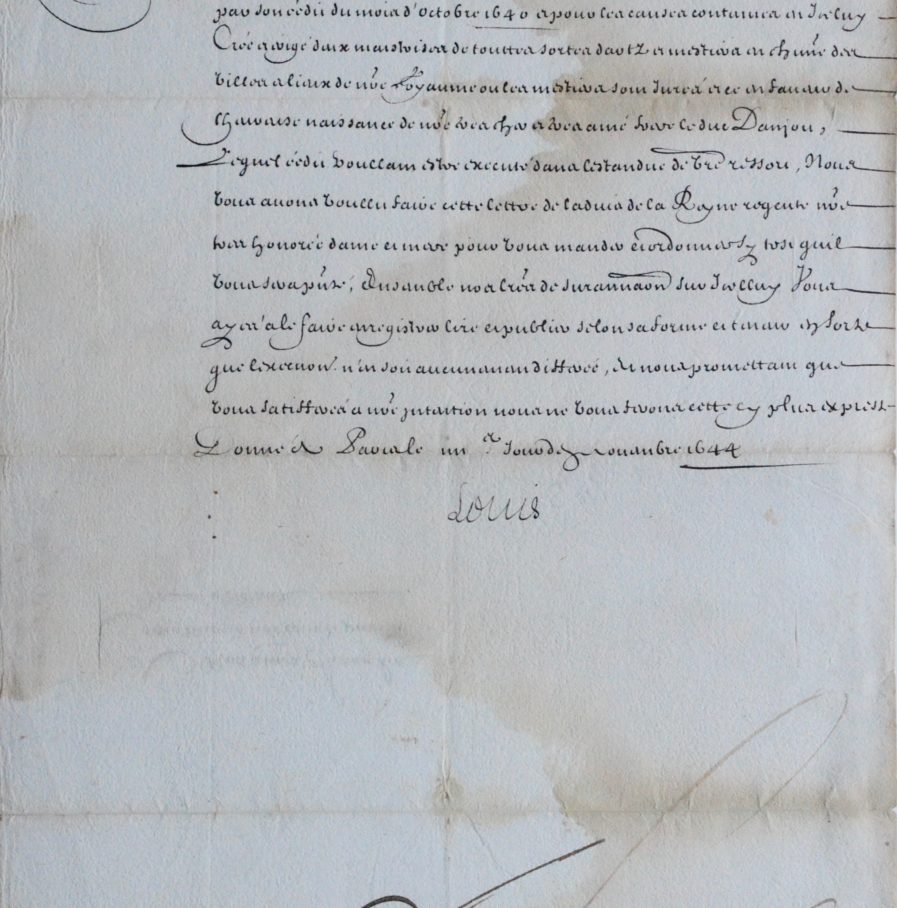 par son édit du mois d'octobre 1640 et pour les causes contenues en Icelluy
Créé et erigé deux maistrises de touttes sortes d'artz et mestiers en chūne des
villes et lieux de nr̄e Royaume ou les mestiers sont Jurés et ce en faveur de
lheureuse naissance de nr̄e tres cher et tres amé frere le duc Danjou,
Lequel édit voullant estre executé dans lestandue de vr̄e ressort, Nous
vous avons voullu faire cette lettre de ladvis de la Reyne regente nr̄e
tres honorée dame et mere pour vous mander et ordonner Sy tost quil
vous sera pn̄té, Ensemble nos lrēs de surannaōn sur Icelluy Vous
ayez a le faire enregistrer lire et publier selon sa forme et teneur En sorte
que lexecuōn n'en soit aucunemant differée, Et nous promettant que
vous satisferés a nr̄e jntantion nous ne vous ferons cette cy plus expresse
Donné A Paris le jour de Novambre 1644
Louis